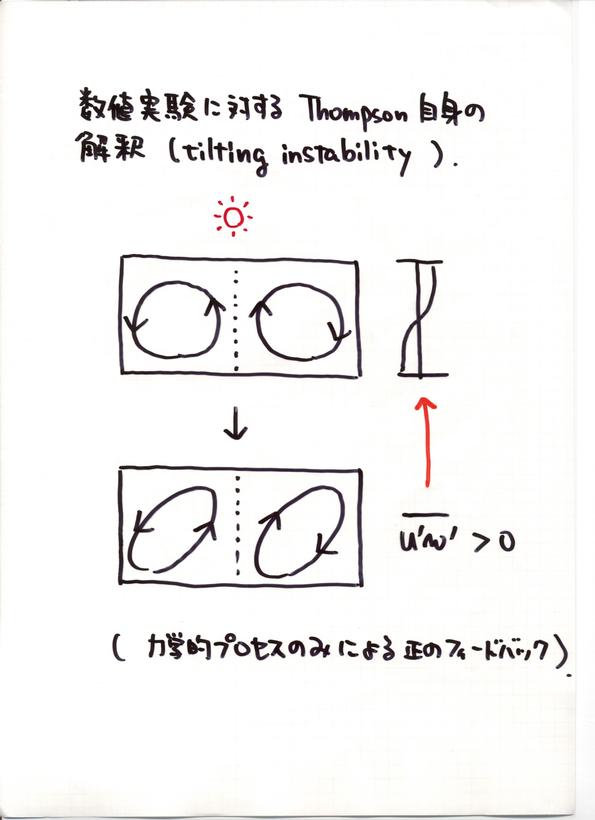 数値実験に対する Thompson 自身の
解釈 (tilting instability ).
u'w' > 0
( 力学的プロセスのみによる 正のフィードバック).